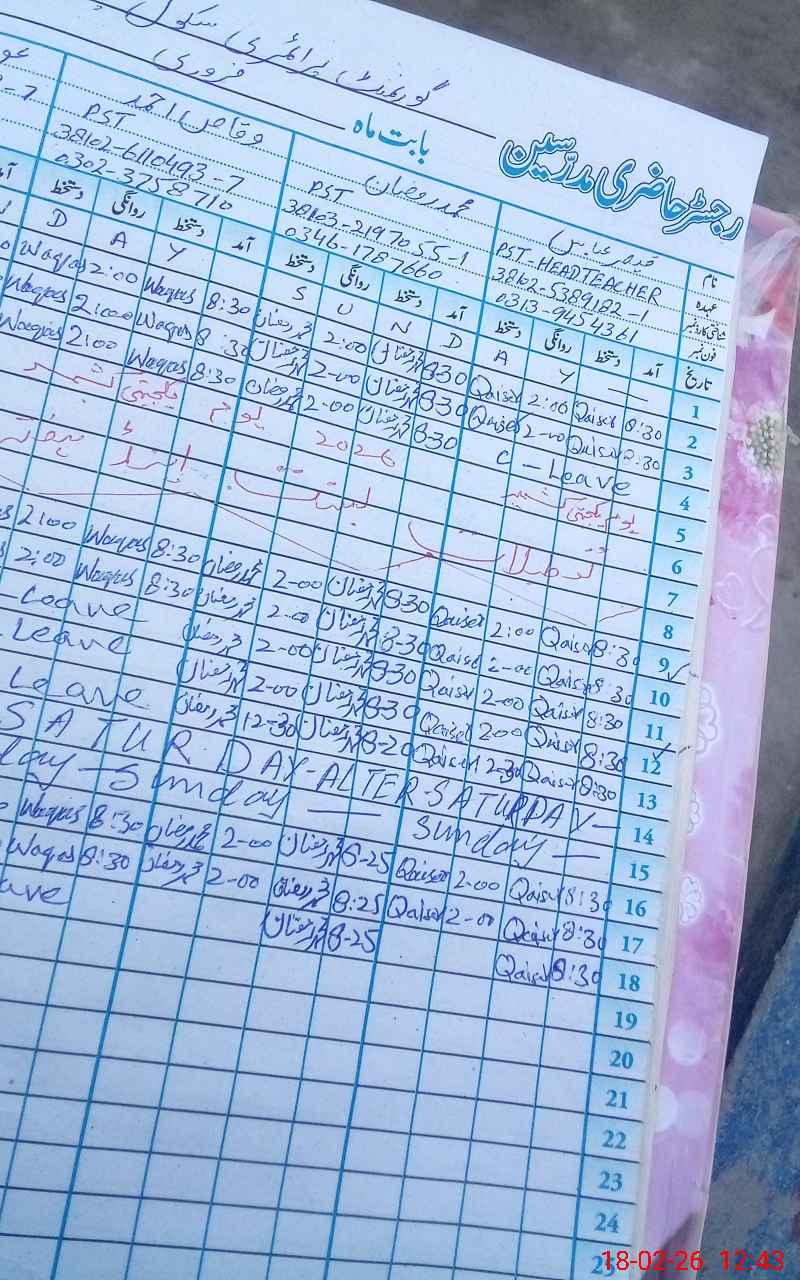 گورنمنٹ پرائمری سکول
رجسٹر حاضری مدرسین بابت ماہ فروری
نام قیصر عباس محمد رمضان وقاص احمد
عہدہ PST-HEADTEACHER PST PST
شناختی کارڈ نمبر 38102-5389182-1 38103-2197055-1 38102-6110493-7
فون نمبر 0313-9454361 0346-1787660 0302-3758710
تاریخ آمد دستخط روانگی دستخط آمد دستخط روانگی دستخط آمد دستخط روانگی دستخط آمد
1 — Y A D N U S Y A D
2 8:30 Qaiser 2:00 Qaiser 8-30 محمد رمضان 2:00 محمد رمضان 8:30 Waqas 2:00 Waqas
3 8:30 Qaiser 2-00 Qaiser 8-30 محمد رمضان 2-00 محمد رمضان 8:30 Waqas 2:00 Waqas
4 C-Leave 8-30 محمد رمضان 2-00 محمد رمضان 8:30 Waqas 2:00 Waqas
5 یوم یکجہتی کشمیر 2026 یوم یکجہتی کشمیر
6
7
8
9 8:30 Qaiser 2:00 Qaiser 8-30 محمد رمضان 2-00 محمد رمضان 8:30 Waqas 2:00
10 8:30 Qaiser 2-00 Qaiser 8-30 محمد رمضان 2-00 محمد رمضان 8:30 Waqas 2:00
11 8:30 Qaiser 2-00 Qaiser 8-30 محمد رمضان 2-00 محمد رمضان Leave
12 8:30 Qaiser 2-00 Qaiser 8-30 محمد رمضان 2-00 محمد رمضان Leave
13 8:30 Qaiser 12-30 Qaiser 8-20 محمد رمضان 12-30 محمد رمضان Leave
14 SATURDAY-ALTER-SATURDAY—
15 Sunday — Sunday —
16 8:30 Qaiser 2-00 Qaiser 8-25 محمد رمضان 2-00 محمد رمضان 8:30 Waqas
17 8:30 Qaiser 2-00 Qaiser 8:25 محمد رمضان 2-00 محمد رمضان 8:30 Waqas
18 8:30 Qaiser 8-25 محمد رمضان
19
20
21
22
23
24
25
18-02-26 12:43